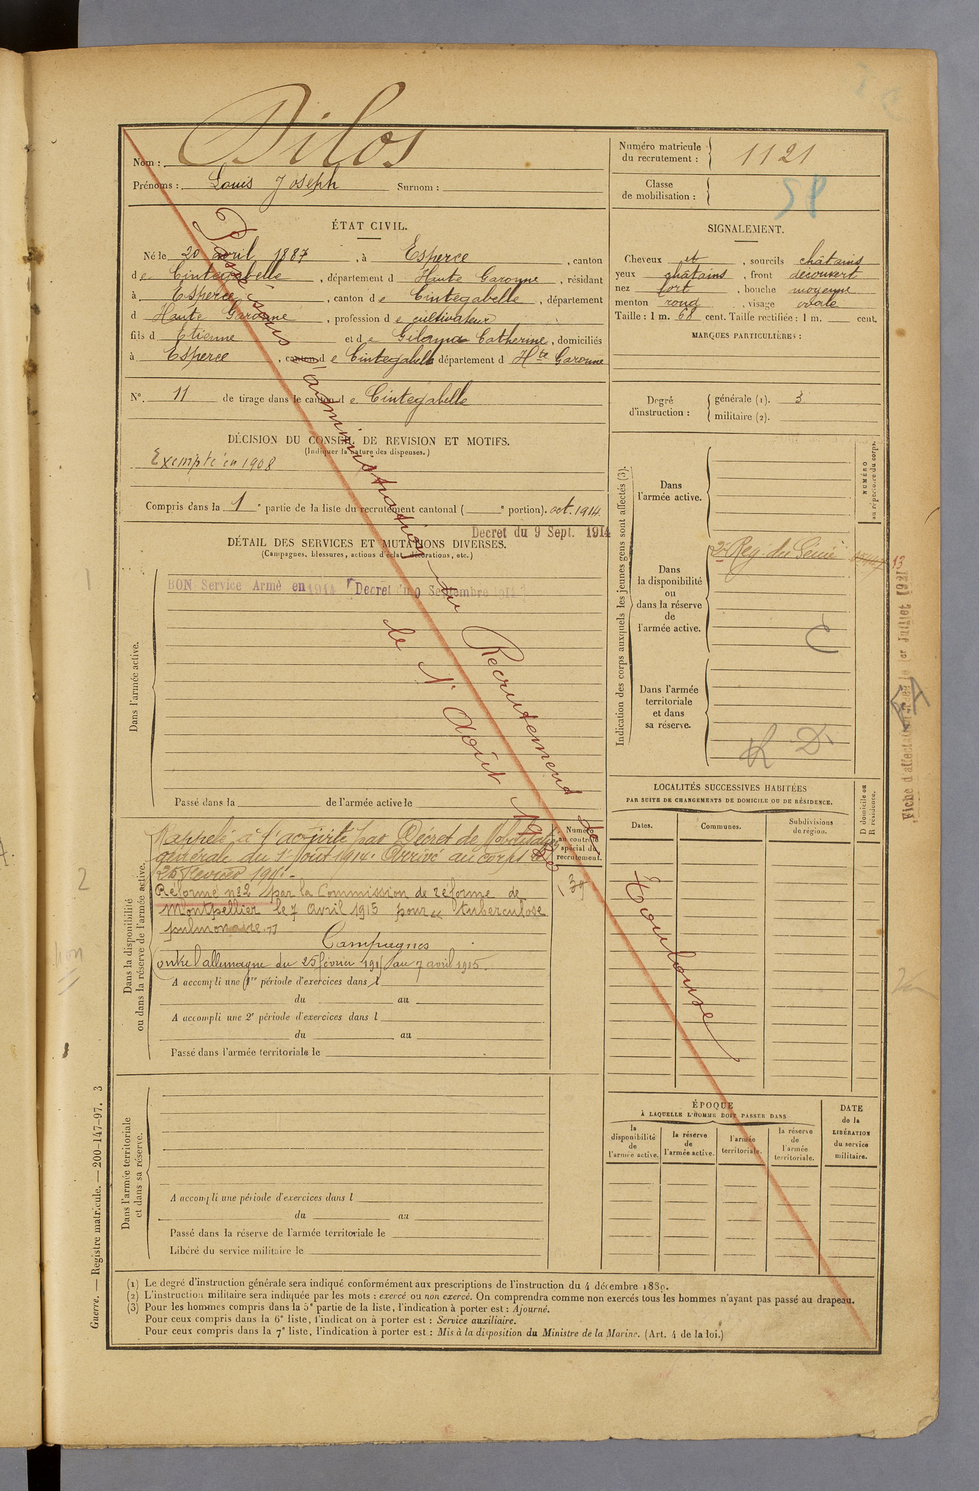 Nom : Dilos
Prénoms : Louis Joseph Surnom :
Numéro matricule du recrutement : 1121
Classe de mobilisation :
ÉTAT CIVIL.
Né le 20 avril 1887, à Esperce, canton
de Cintegabelle, département d Haute Garonne, résidant
à Esperce, canton de Cintegabelle, département
d Haute Garonne, profession de cultivateur
fils d Etienne et de Catherine, domiciliés
à Esperce, canton de Cintegabelle département d Hte Garonne
N°. 11 de tirage dans le canton de Cintegabelle
SIGNALEMENT.
Cheveux et, sourcils châtains
yeux châtains, front découvert
nez fort, bouche moyenne
menton rond, visage ovale
Taille : 1 m. 68 cent. Taille rectifiée : 1 m. cent.
MARQUES PARTICULIÈRES :
Degré d'instruction : générale (1). 3
militaire (2).
DÉCISION DU CONSEIL DE REVISION ET MOTIFS.
(Indiquer la nature des dispenses.)
Exempté en 1908
Compris dans la 1e partie de la liste du recrutement cantonal ( e portion). oct. 1914
Decret du 9 Sept. 1914
DÉTAIL DES SERVICES ET MUTATIONS DIVERSES.
(Campagnes, blessures, actions d'éclat, décorations, etc.)
BON Service Armé en 1914 Decret du 9 Septembre 1914
Dans l'armée active.
Passé dans la de l'armée active le
Passé sous l'administration du Recrutement de Toulouse
le 1r Août 19
Rappelé à l'activité par Décret de Mobilisation
générale du 1r Août 1914. Arrivé au corps le
25 février 191
Réformé n° 2 par la Commission de réforme de
Montpellier le 7 avril 1915 pour "tuberculose
pulmonaire"
Campagnes
contre l'allemagne du 25 février 191 au 7 avril 1915.
Numéro au contrôle spécial du recrutement.
Dans la disponibilité
ou dans la réserve de l'armée active.
A accompli une 1re période d'exercices dans l
du au
A accompli une 2e période d'exercices dans l
du au
Passé dans l'armée territoriale le
Dans l'armée territoriale
et dans sa réserve.
A accompli une période d'exercices dans l
du au
Passé dans la réserve de l'armée territoriale le
Libéré du service militaire le
Indication des corps auxquels les jeunes gens sont affectés (3).
NUMÉRO
au répertoire du corps.
Dans
l'armée active.
Dans
la disponibilité
ou
dans la réserve
de
l'armée active.
2e Reg. du Génie
13
Dans l'armée
territoriale
et dans
sa réserve.
R D
Fiche d'affectation le 1er Juillet 1921
LOCALITÉS SUCCESSIVES HABITÉES
PAR SUITE DE CHANGEMENTS DE DOMICILE OU DE RÉSIDENCE.
D domicile ou
R résidence.
Dates. Communes. Subdivisions de région.
ÉPOQUE
À LAQUELLE L'HOMME DOIT PASSER DANS
la disponibilité de l'armée active.
la réserve de l'armée active.
l'armée territoriale.
la réserve de l'armée territoriale.
DATE
de la
LIBÉRATION
du service
militaire.
(1) Le degré d'instruction générale sera indiqué conformément aux prescriptions de l'instruction du 4 décembre 1889.
(2) L'instruction militaire sera indiquée par les mots : exercé ou non exercé. On comprendra comme non exercés tous les hommes n'ayant pas passé au drapeau.
(3) Pour les hommes compris dans la 5e partie de la liste, l'indication à porter est : Ajourné.
Pour ceux compris dans la 6e liste, l'indication à porter est : Service auxiliaire.
Pour ceux compris dans la 7e liste, l'indication à porter est : Mis à la disposition du Ministre de la Marine. (Art. 4 de la loi.)
Guerre. — Registre matricule. — 200-147-97. 3